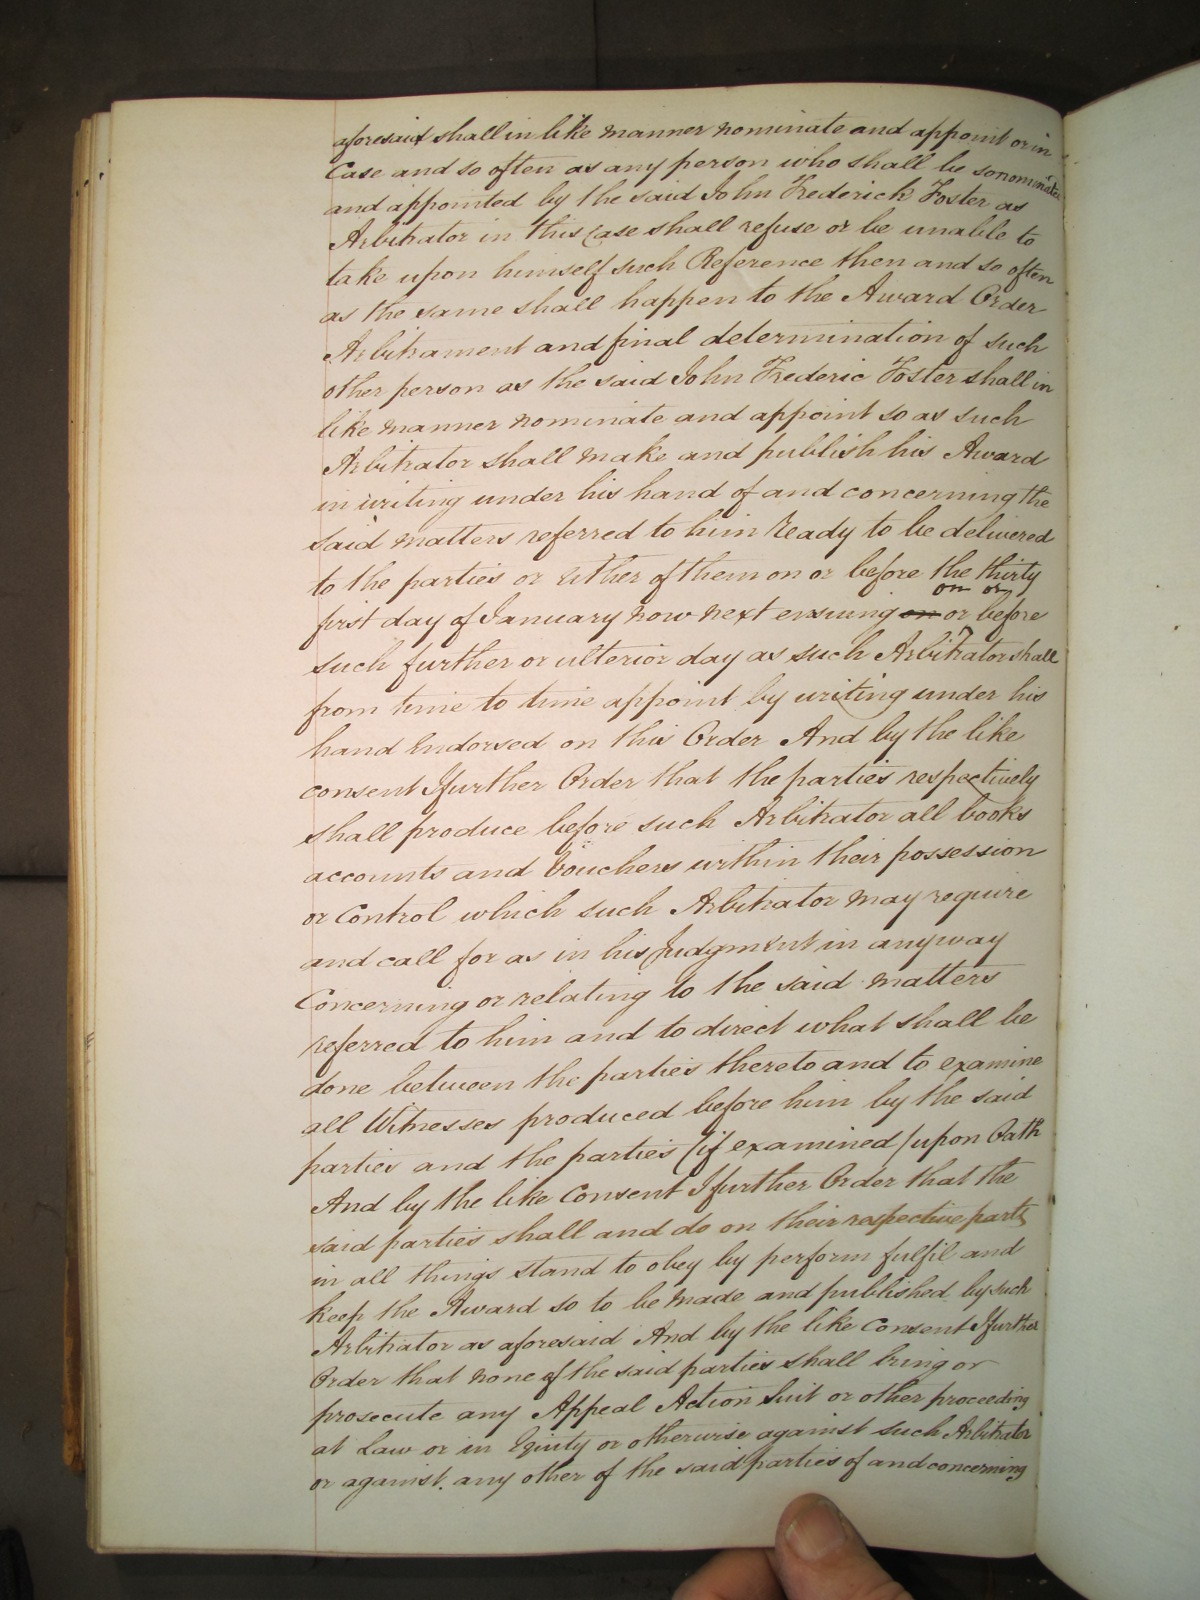 aforesaid shall in like manner nominate and appoint or in
Case and so often as any person who shall be so nominated
and appointed by the said John Frederick Foster as
Arbitrator in this Case shall refuse or be unable to
take upon himself such Reference then and so often
as the same shall happen to the Award Order
Arbitrament and final determination of such
other person as the said John Frederic Foster shall in
like manner nominate and appoint so as such
Arbitrator shall make and publish his Award
in writing under his hand of and concerning the
said matters referred to him ready to be delivered
to the parties or either of them on or before the thirty
on or
first day of January now next ensuing on or before
such further or ulterior day as such Arbitrator shall
from time to time appoint by writing under his
hand Endorsed on this Order And by the like
consent I further Order that the parties respectively
shall produce before such Arbitrator all books
accounts and Vouchers within their possession
or Control which such Arbitrator may require
and call for as in his Judgment in anyway
Concerning or relating to the said matters
referred to him and to direct what shall be
done between the parties thereto and to examine
all Witnesses produced before him by the said
parties and the parties (if examined) upon Oath
And by the like Consent I further Order that the
said parties shall and do on their respective parts
in all things stand to obey by perform fulfil and
keep the Award so to be made and published by such
Arbitrator as aforesaid And by the like Consent I further
Order that none of the said parties shall bring or
prosecute any Appeal Action Suit or other proceeding
at Law or in Equity or otherwise against such Arbitrator
or against any other of the said parties of and concerning